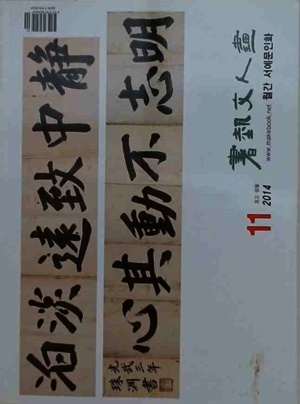 書藝文人畫
www.makebook.net 월간 서예문인화
11
2014
靜中致遠淡泊
明志不動其心
光武三年
珠淵書